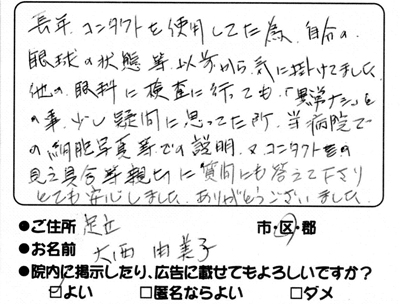 長年、コンタクトを使用してた為、自分の
眼球の状態等以前から気に掛けてました。
他の眼科に検査に行っても、「異常ナシ」と
の事、少し疑問に思ってた所、当病院で
の細胞写真等での説明、又コンタクト等の
見え具合等親切に質問にも答えて下さり
とても安心しました。ありがとうございました。
●ご住所 足立 市・区・郡
●お名前 大西 由美子
●院内に掲示したり、広告に載せてもよろしいですか?
☑よい □匿名ならよい □ダメ